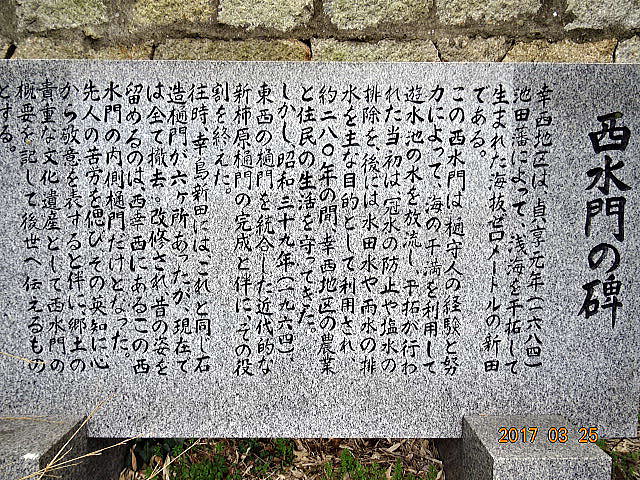 西水門の碑
幸西地区は、貞享元年(一六八四)
池田藩によって、浅海を干拓して
生まれた海抜ゼロメートルの新田
である。
この西水門は、樋守人の経験と努
力によって、海の干満を利用して
遊水池の水を放流し、干拓が行わ
れた当初は冠水の防止や塩水の
排除を、後には水田水や雨水の排
水を主な目的として利用され、
約二八〇年の間、幸西地区の農業
と住民の生活を守ってきた。
しかし、昭和三十九年(一九六四)、
東西の樋門を統合した近代的な
新柿原樋門の完成と伴に、その役
割を終えた。
往時、幸島新田にはこれと同じ石
造樋門が六ヶ所あったが、現在で
は全て撤去。改修され昔の姿を
留めるのは、西幸西にあるこの西
水門の内側樋門だけとなった。
先人の苦労を偲び、その英知に心
から敬意を表すると伴に、郷土の
貴重な文化遺産として西水門の
概要を記して後世へ伝えるもの
とする。
2017 03 25